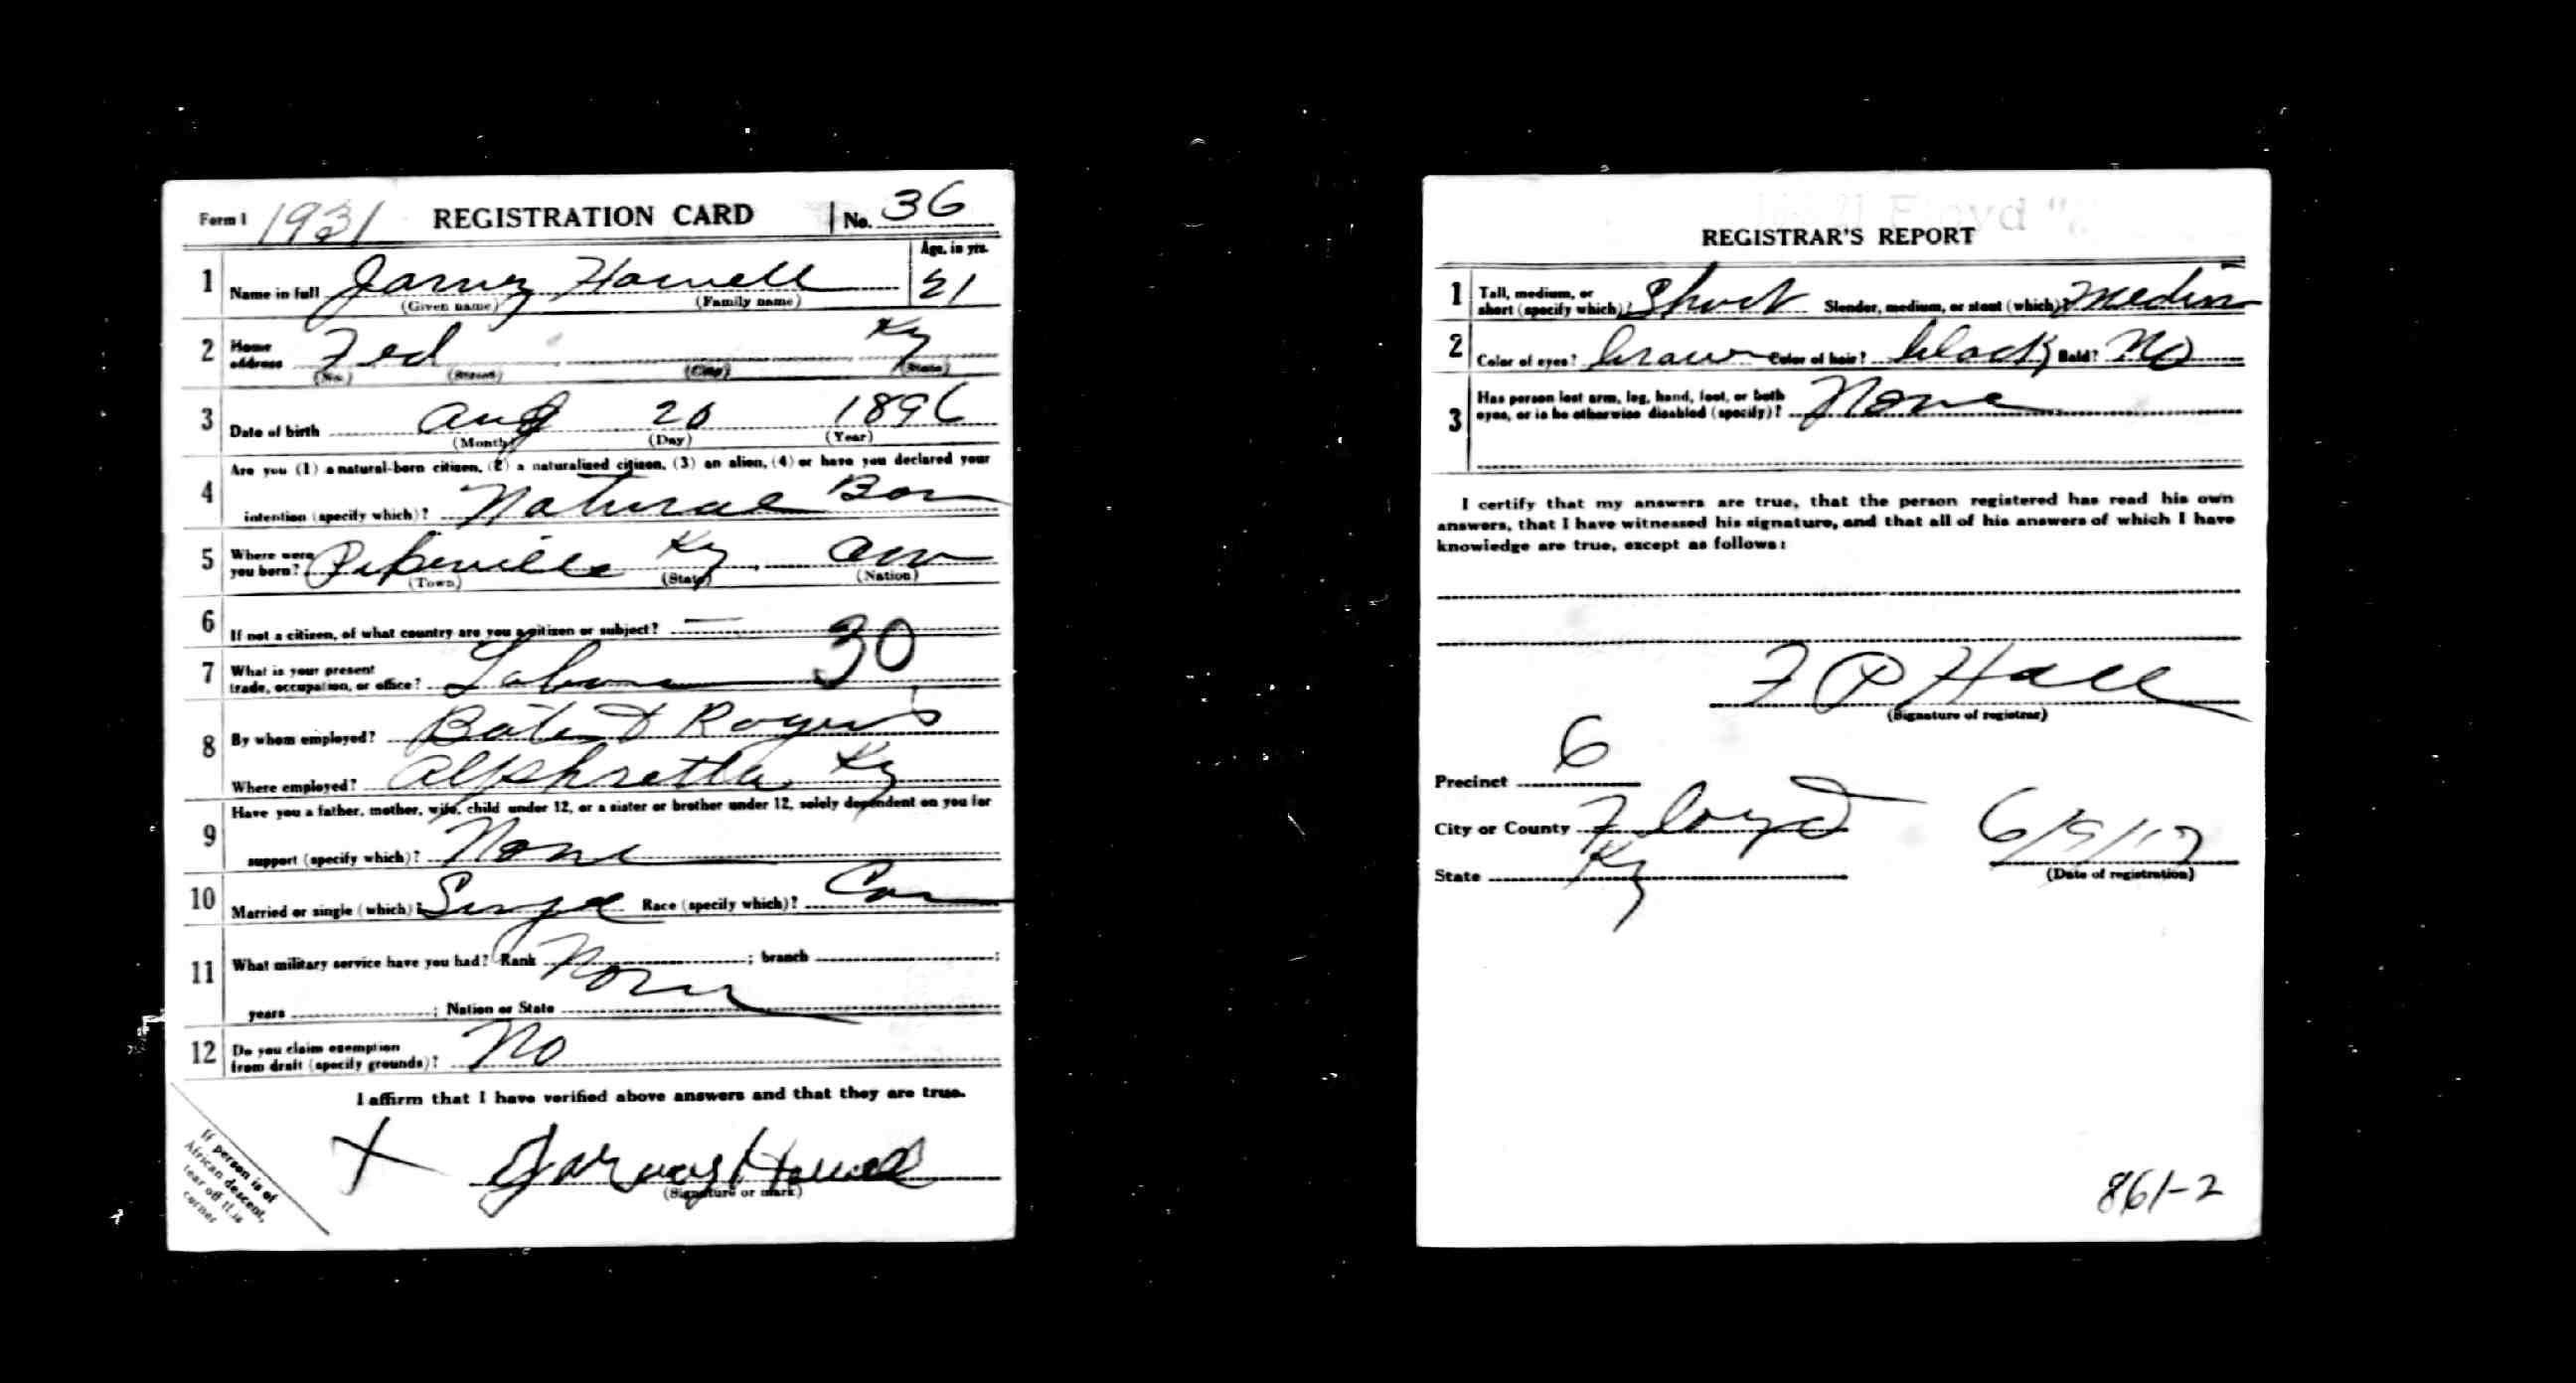 Form 1 1931 REGISTRATION CARD No. 36
Age, in yrs.
1 Name in full Howell 21
(Given name) (Family name)
2 Home address Fed Ky
(No.) (Street) (City) (State)
3 Date of birth Aug 20 1896
(Month) (Day) (Year)
4 Are you (1) a natural-born citizen, (2) a naturalized citizen, (3) an alien, (4) or have you declared your
intention (specify which)? Natural Born
5 Where were you born? Pikeville Ky
(Town) (State) (Nation)
6 If not a citizen, of what country are you a citizen or subject? —
30
7 What is your present
trade, occupation, or office? Labor
8 By whom employed? Bates & Rogers
Where employed? Alphretta Ky
9 Have you a father, mother, wife, child under 12, or a sister or brother under 12, solely dependent on you for
support (specify which)? None
10 Married or single (which)? Single Race (specify which)? Cau
11 What military service have you had? Rank None ; branch ;
years ; Nation or State
12 Do you claim exemption
from draft (specify grounds)? No
I affirm that I have verified above answers and that they are true.
X Howell
(Signature or mark)
If person is of
African descent,
tear off this
corner
REGISTRAR'S REPORT
1 Tall, medium, or
short (specify which)? Short Slender, medium, or stout (which)? Medium
2 Color of eyes? brown Color of hair? black Bald? No
3 Has person lost arm, leg, hand, foot, or both
eyes, or is he otherwise disabled (specify)? None
I certify that my answers are true, that the person registered has read his own
answers, that I have witnessed his signature, and that all of his answers of which I have
knowledge are true, except as follows:
F P Hall
(Signature of registrar)
Precinct 6
City or County Floyd
State Ky
(Date of registration)
861-2